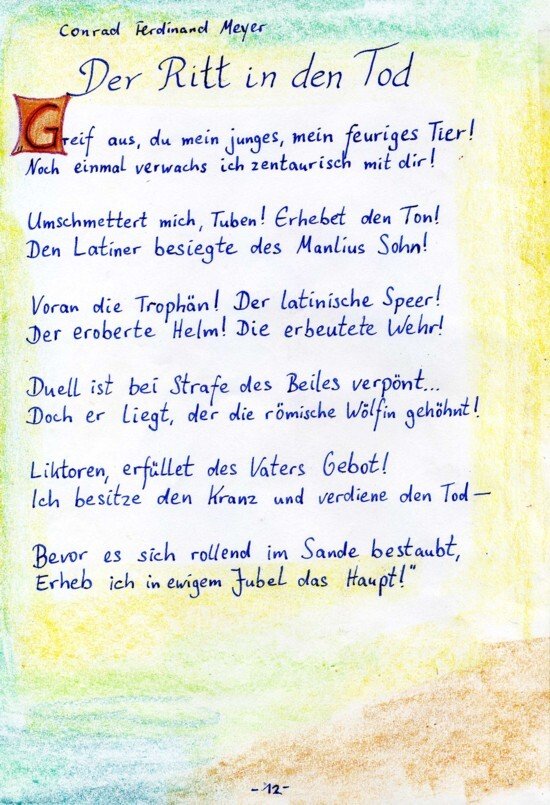 Conrad Ferdinand Meyer
Der Ritt in den Tod
Greif aus, du mein junges, mein feuriges Tier!
Noch einmal verwachs ich zentaurisch mit dir!
Umschmettert mich, Tuben! Erhebet den Ton!
Den Latiner besiegte des Manlius Sohn!
Voran die Trophän! Der latinische Speer!
Der eroberte Helm! Die erbeutete Wehr!
Duell ist bei Strafe des Beiles verpönt...
Doch er liegt, der die römische Wölfin gehöhnt!
Liktoren, erfüllet des Vaters Gebot!
Ich besitze den Kranz und verdiene den Tod—
Bevor es sich rollend im Sande bestaubt,
Erheb ich in ewigem Jubel das Haupt!"
-12-